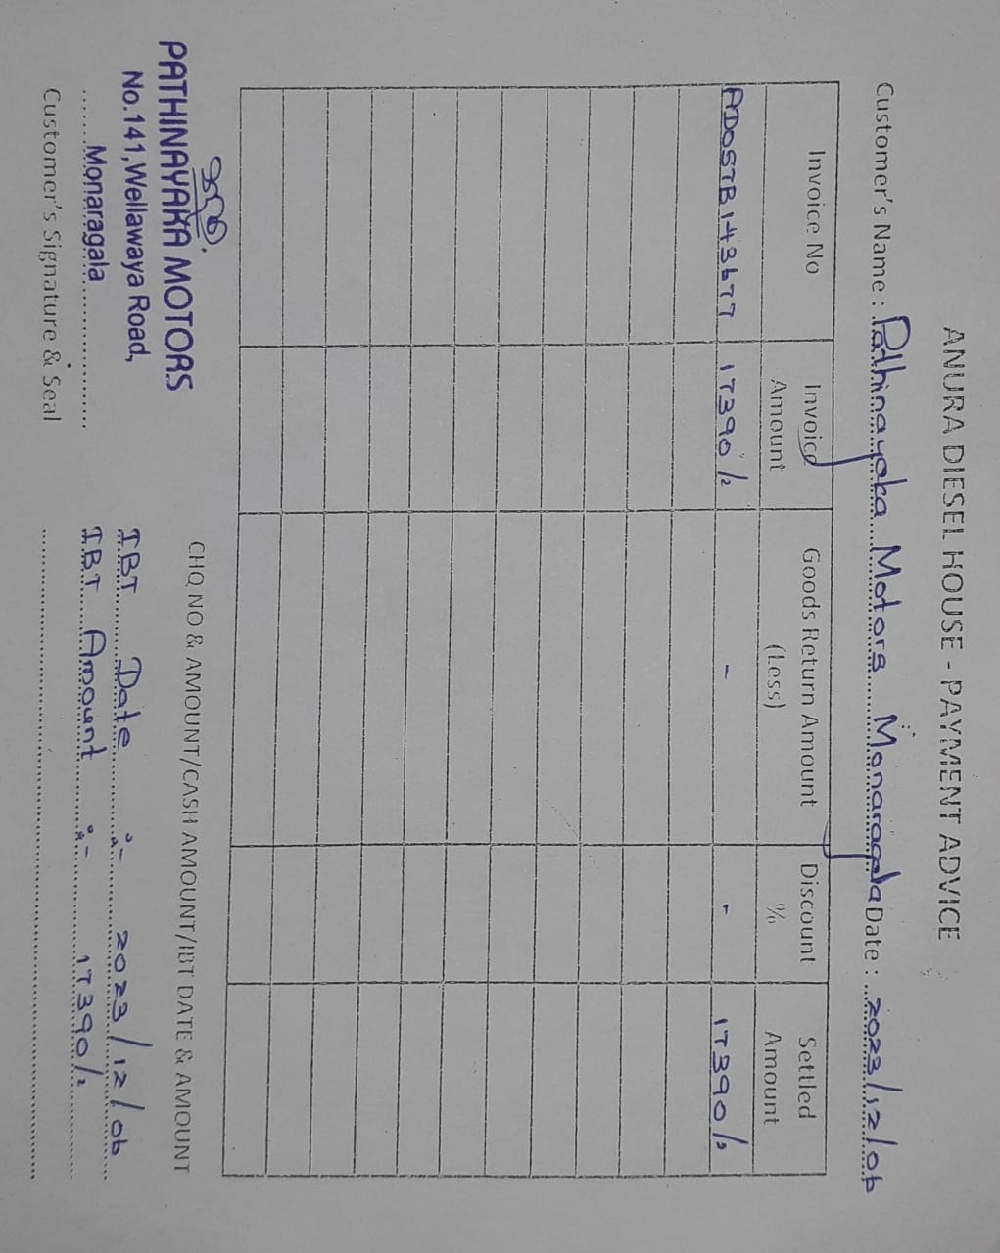 ANURA DIESEL HOUSE - PAYMENT ADVICE
Customer's Name : Pathinayaka Motors Monaragala Date : 2023/12/06
Invoice No Invoice Amount Goods Return Amount (Less) Discount % Settled Amount
ADOSTB143677 17390/= - - 17390/=
CHQ NO & AMOUNT/CASH AMOUNT/IBT DATE & AMOUNT
PATHINAYAKA MOTORS
No.141,Wellawaya Road,
Monaragala
Customer's Signature & Seal
IBT Date :- 2023/12/06
IBT Amount :- 17390/=